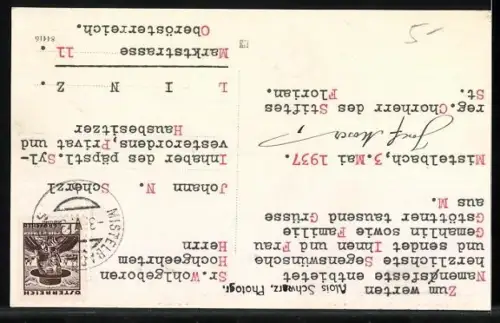 Zum werten
Namensfeste entbietet
herzlichste Segenswünsche
und sendet Ihnen und Frau
Gemahlin sowie Familie
Gstöttner tausend Grüsse
aus M.
Mistelbach, 3. Mai 1937.
reg. Chorherr des Stiftes
St. Florian.
Alois Schwarz, Photogr.
Sr. Wohlgeboren
Hochgeehrtem
Herrn
Johann N. Scherzl
Inhaber des päpstl. Syl-
vesterordens, Privat und
Hausbesitzer
L I N Z .
Marktstrasse 11 .
Oberösterreich.
84416
5-
MISTELBACH
12
ÖSTERREICH